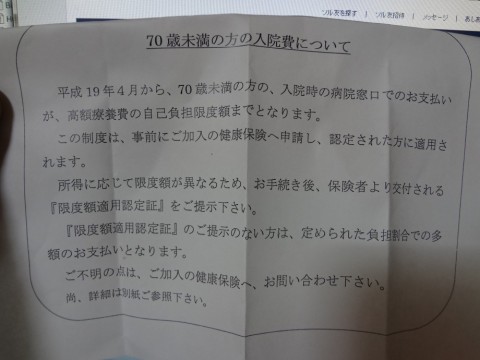 ソル友を探す ソルを招待 メッセージ あしあ
70歳未満の方の入院費について
平成19年4月から、70歳未満の方の、入院時の病院窓口でのお支払い
が、高額療養費の自己負担限度額までとなります。
この制度は、事前にご加入の健康保険へ申請し、認定された方に適用さ
れます。
所得に応じて限度額が異なるため、お手続き後、保険者より交付される
『限度額適用認定証』をご提示下さい。
『限度額適用認定証』のご提示のない方は、定められた負担割合での多
額のお支払いとなります。
ご不明の点は、ご加入の健康保険へ、お問い合わせ下さい。
尚、詳細は別紙ご参照下さい。